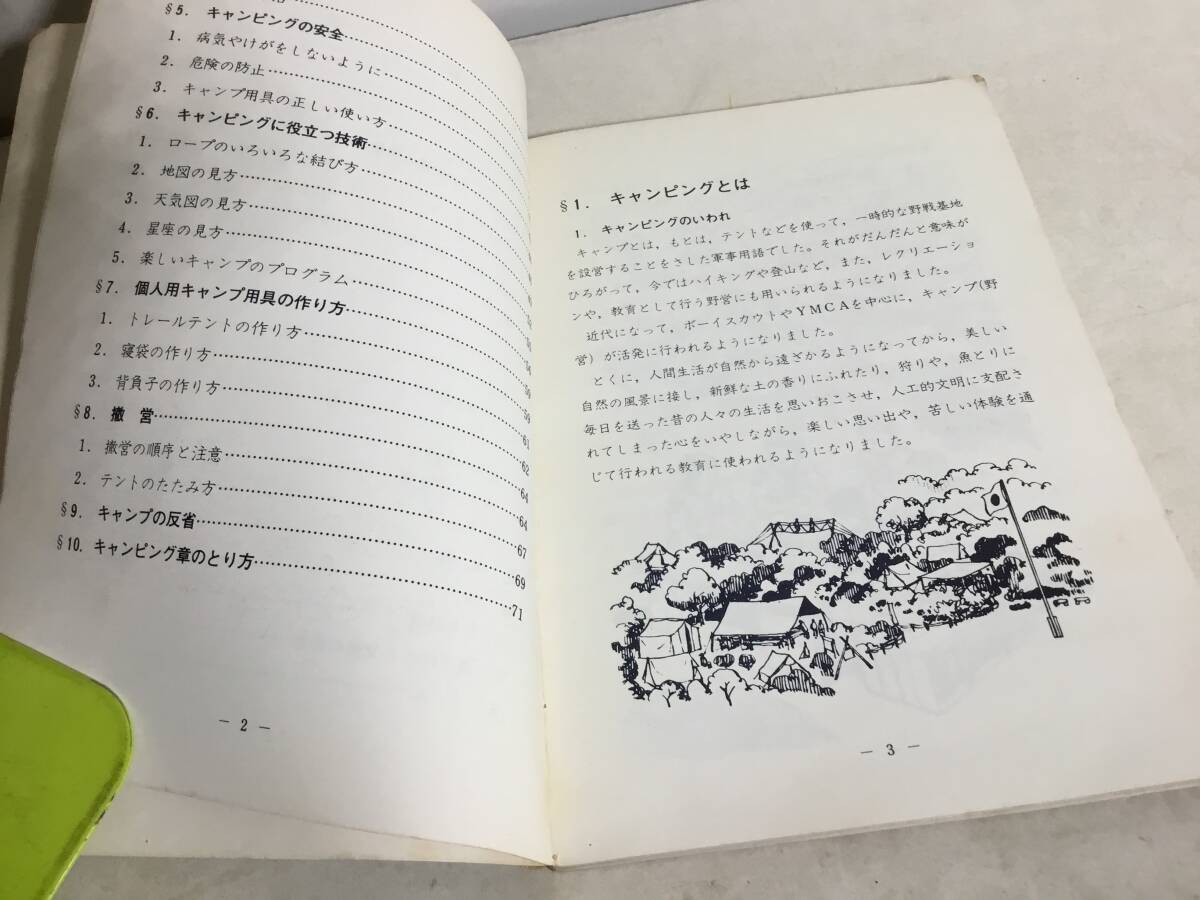 §5. キャンピングの安全
1. 病気やけがをしないように
2. 危険の防止
3. キャンプ用具の正しい使い方
§6. キャンピングに役立つ技術
1. ロープのいろいろな結び方
2. 地図の見方
3. 天気図の見方
4. 星座の見方
5. 楽しいキャンプのプログラム
§7. 個人用キャンプ用具の作り方
1. トレールテントの作り方
2. 寝袋の作り方
3. 背負子の作り方
§8. 撤 営 61
1. 撤営の順序と注意 62
2. テントのたたみ方 64
§9. キャンプの反省 67
§10. キャンピング章のとり方 69
71
— 2 —
§1. キャンピングとは
1. キャンピングのいわれ
キャンプとは，もとは，テントなどを使って，一時的な野戦基地
を設営することをさした軍事用語でした。それがだんだんと意味が
ひろがって，今ではハイキングや登山など，また，レクリエーショ
ンや，教育として行う野営にも用いられるようになりました。
近代になって，ボーイスカウトやYMCAを中心に，キャンプ(野
営) が活発に行われるようになりました。
とくに，人間生活が自然から遠ざかるようになってから，美しい
自然の風景に接し，新鮮な土の香りにふれたり，狩りや，魚とりに
毎日を送った昔の人々の生活を思いおこさせ，人工的文明に支配さ
れてしまった心をいやしながら，楽しい思い出や，苦しい体験を通
じて行われる教育に使われるようになりました。
— 3 —